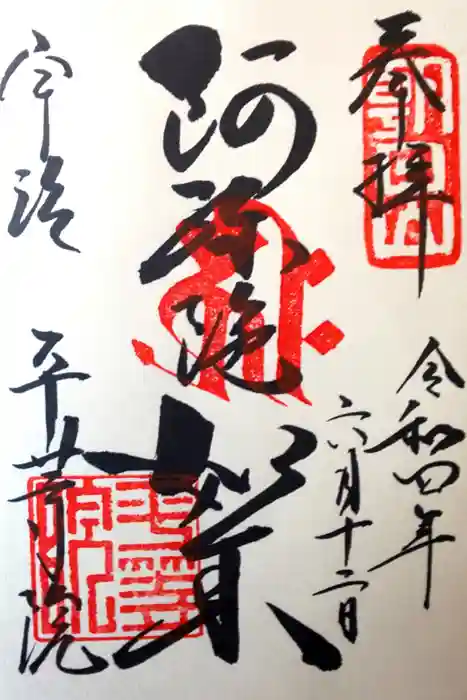 奉拝
令和四年
六月十二日
阿弥陀如来
宇治
平等院